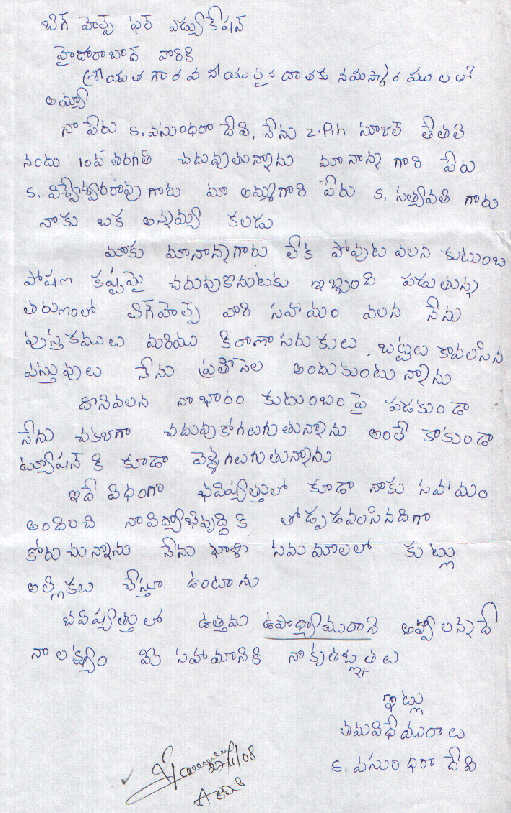 బిగ్ హెల్ప్ ఫర్ ఎడ్యుకేషన్
హైదారాబాద్ వారికి
శ్రీయుత గౌరవనీయులైన దాతకు నమస్కారములు?
అయ్యా
నా పేరు K. వసుంధరా దేవి, నేను Z.P.H స్కూల్ తేతలి
నందు 10వ తరగతి చదువుతున్నాను మా నాన్న గారి పేరు
K. విశ్వేశ్వరరావు గారు మా అమ్మగారి పేరు K. సత్యవతి గారు
నాకు ఒక అన్నయ్య కలడు
మాకు మా నాన్నగారు లేక పోవుట వలన కుటుంబ
పోషణ కష్టమై చదువుకొనుటకు ఇబ్బంది పడుతున్న
తరుణంలో బిగ్‌హెల్ప్ వారి సహాయం వలన నేను
పుస్తకములు మరియు కిరాణాసరుకులు, బట్టలు కావలసిన
వస్తువులు నేను ప్రతీనెల అందుకుంటున్నాను
దానివలన నా భారం కుటుంబం పై పడకుండా
నేను చక్కగా చదువుకోగలుగుతున్నాను అంతే కాకుండా
ట్యూషన్ కి కూడా వెళ్ళగలుగుతున్నాను
ఇదే విధంగా భవిష్యత్తులో కూడా నాకు సహాయం
అందించి నా విద్యాభివృద్ధి కి తోడ్పడవలసినదిగా
కోరుచున్నాను నేను ఖాళీ సమయాలలో కుట్లు
అల్లికలు చేస్తూ ఉంటాను
భవిష్యత్తులో ఉత్తమ ఉపాధ్యాయురాలి అవ్వాలన్నదే
నా లక్ష్యం మీ సహాయానికి నా కృతజ్ఞతలు
ఇట్లు
తమవిధేయురాలు
K. వసుంధరా దేవి